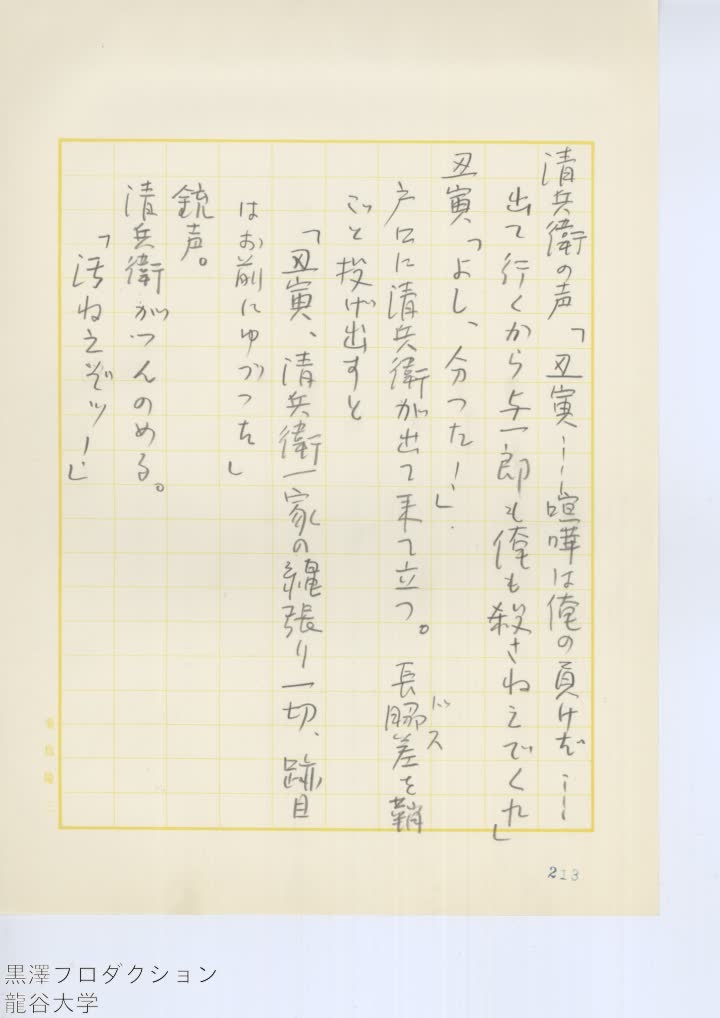 清兵衛の声「丑寅……喧嘩は俺の負けだ……
出て行くから与一郎も俺も殺さねえでくれ」
丑寅、「よし、分つたー！」
戸口に清兵衛が出て来て立つ。長脇差を鞘
ドス
ごと投げ出すと
「丑寅、清兵衛一家の縄張り一切、跡目
はお前にゆづつた」
銃声。
清兵衛がつんのめる。
「汚ねえぞッ！」
213
黒澤プロダクション
龍谷大学